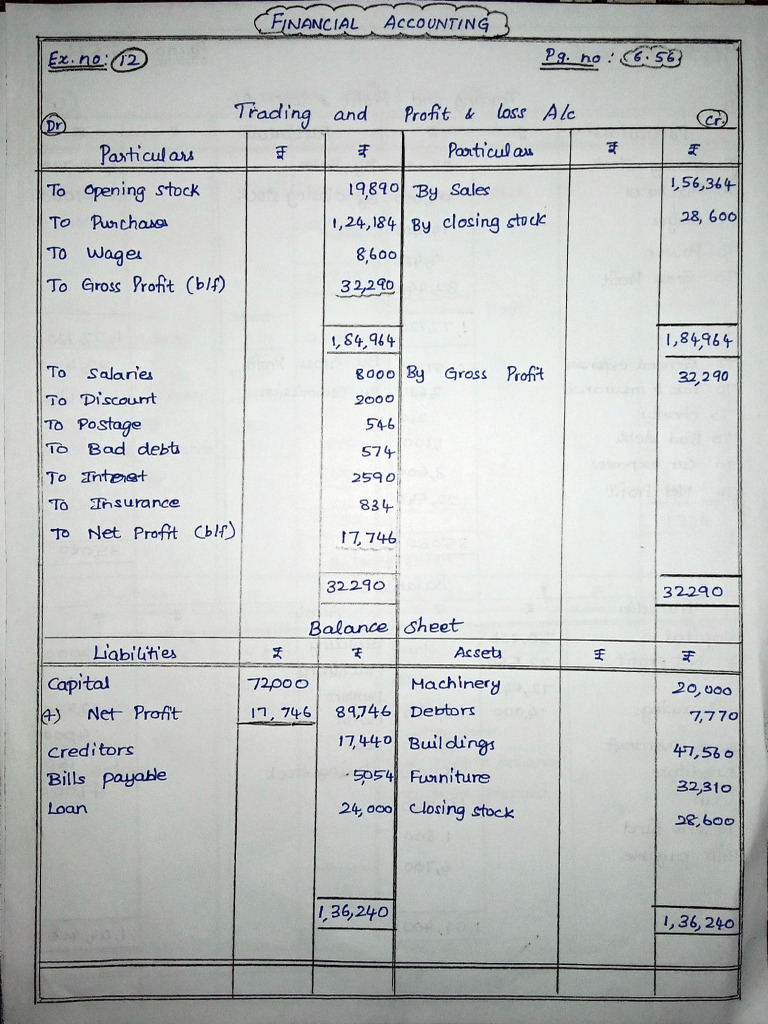 FINANCIAL ACCOUNTING
Ex. no: 12 Pg. no: 6.56
Trading and Profit & loss A/c
Dr Cr.
Particulars ₹ ₹ Particulars ₹ ₹
To opening stock 19,890 By Sales 1,56,364
To Purchases 1,24,184 By closing stock 28,600
To Wages 8,600
To Gross Profit (b/f) 32,290
1,84,964 1,84,964
To Salaries 8000 By Gross Profit 32,290
To Discount 2000
To Postage 546
To Bad debts 574
To Interest 2590
To Insurance 834
To Net Profit (b/f) 17,746
32290 32290
Balance Sheet
Liabilities ₹ ₹ Assets ₹ ₹
Capital 72,000 Machinery 20,000
(+) Net Profit 17,746 89,746 Debtors 7,770
creditors 17,440 Buildings 47,560
Bills payable 5,054 Furniture 32,310
Loan 24,000 closing stock 28,600
1,36,240 1,36,240